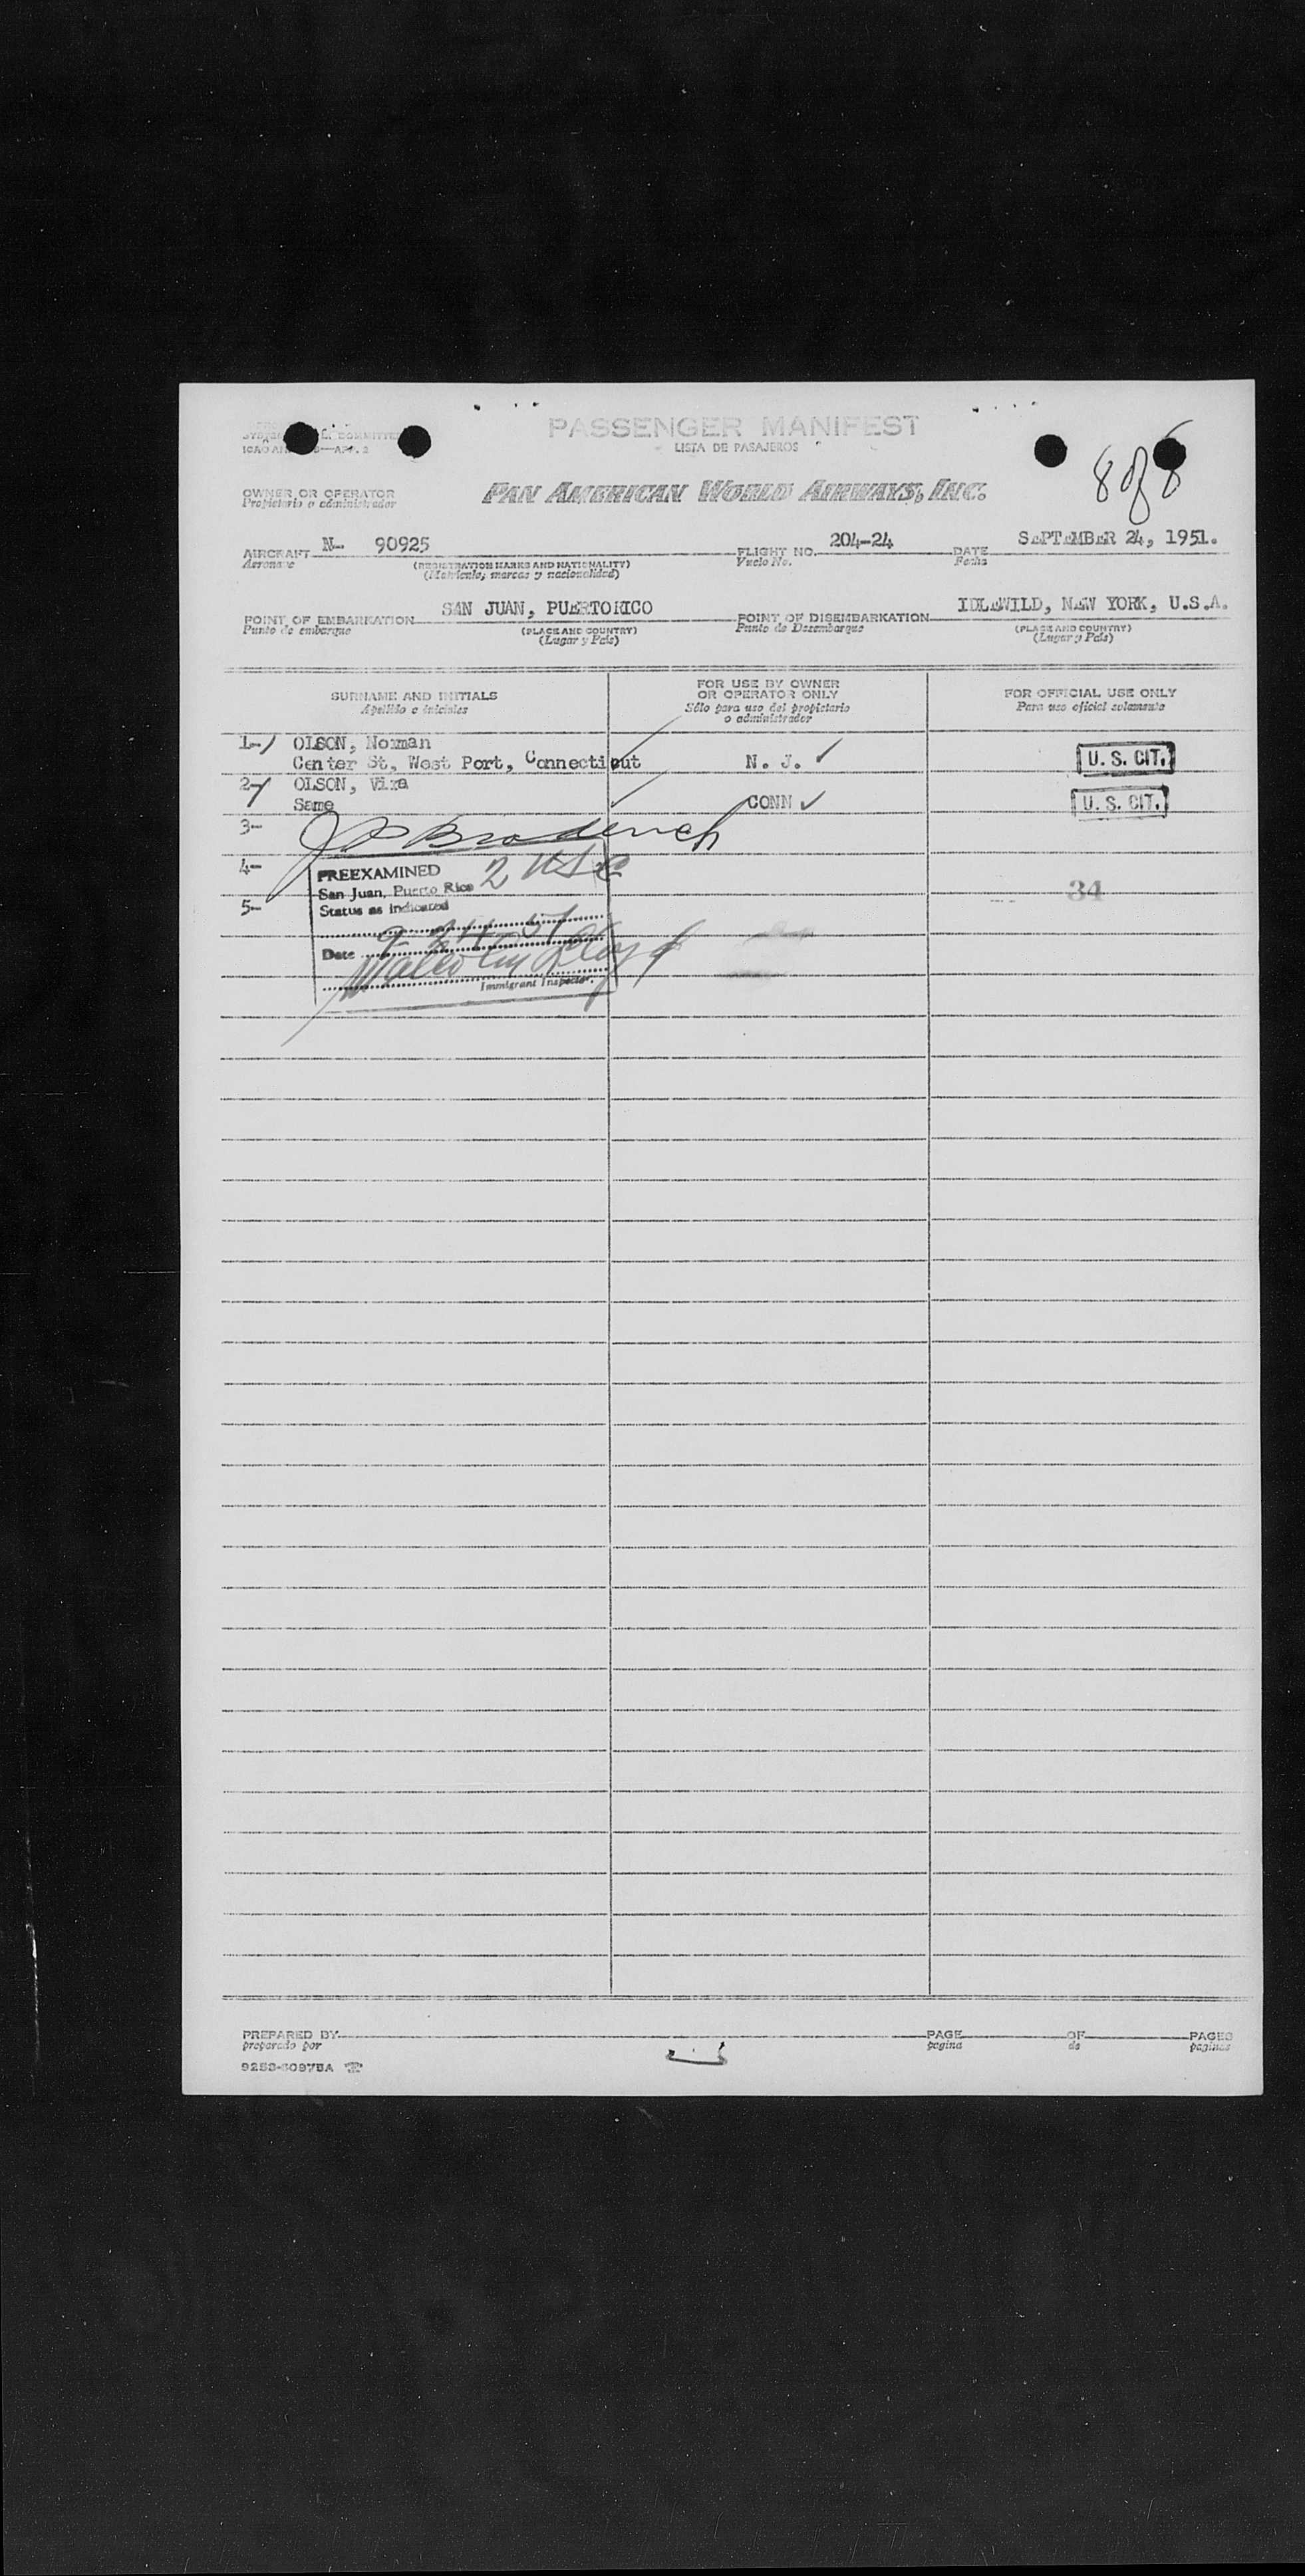 PASSENGER MANIFEST
LISTA DE PASAJEROS
8 of 8
ICAO AN
OWNER OR OPERATOR
Propietario o administrador
PAN AMERICAN WORLD AIRWAYS, INC.
AIRCRAFT N- 90925 FLIGHT NO. 204-24 DATE SEPTEMBER 24, 1951.
Aeronave (REGISTRATION MARKS AND NATIONALITY) Vuelo No. Fecha
(Matricula, marcas y nacionalidad)
POINT OF EMBARKATION SAN JUAN, PUERTORICO POINT OF DISEMBARKATION IDLEWILD, NEW YORK, U.S.A.
Punto de embarque (PLACE AND COUNTRY) Punto de Desembarque (PLACE AND COUNTRY)
(Lugar y País) (Lugar y País)
SURNAME AND INITIALS
Apellido e iniciales
FOR USE BY OWNER
OR OPERATOR ONLY
Sólo para uso del propietario
o administrador
FOR OFFICIAL USE ONLY
Para uso oficial solamente
1- OLSON, Norman
Center St, West Port, Connecticut N. J. ✓ U. S. CIT.
2- OLSON, Vira
Same CONN ✓ U. S. CIT.
3-
4-
PREEXAMINED 2 USC
San Juan, Puerto Rico
5- Status as indicated
34
Date 9 24 51
Malcolm Lloyd
Immigrant Inspector.
PREPARED BY PAGE OF PAGES
preparado por pagina de paginas
9253-6097BA